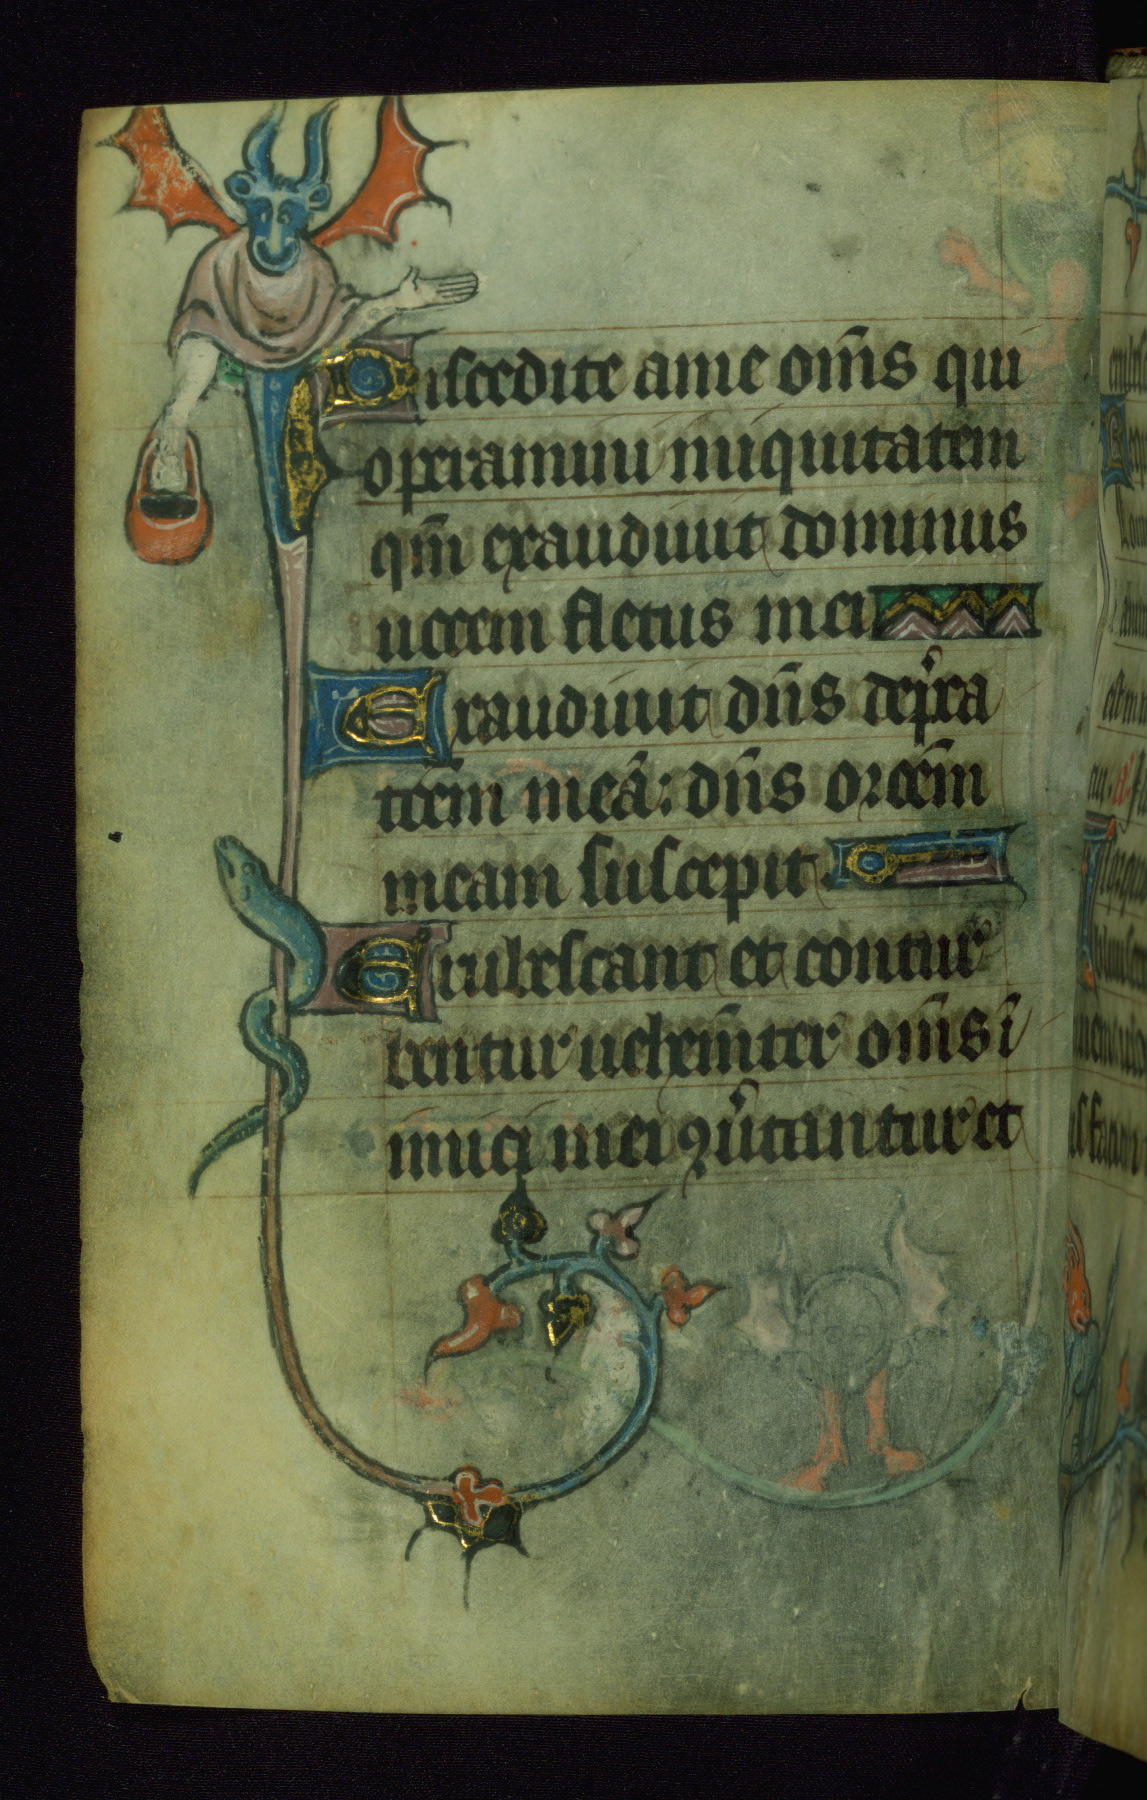 Discedite a me om̄s qui
operamini iniquitatem
qm̄ exaudiuit dominus
uocem fletus mei
Exaudiuit dn̄s dep̄ca
tōem meā: dn̄s orōēm
meam suscepit
Erubescant et contur
bentur uehem̄ter om̄s i
nimici mei ꝯuͥtantur et